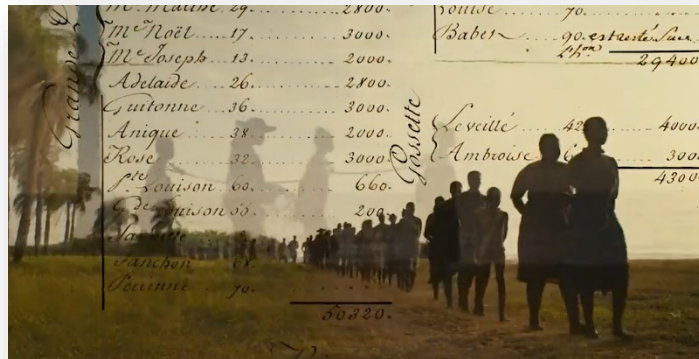 M.e Marine 29. 2800
M.e Noël 17. 3000.
M.e Joseph 13. 2000.
Adelaide 26. 2800
Guitonne 36. 3000.
Anique 28 2000.
Rose 32. 3000
P.te Louison 60. 660.
G.de Louison 200.
Fanchon
Perinne 70.
50320.
Louise 70.
Babet 90. est restée Sur
L'h.on
29400
Gossette
Leveillé 42 4000
Ambroise 300
4300